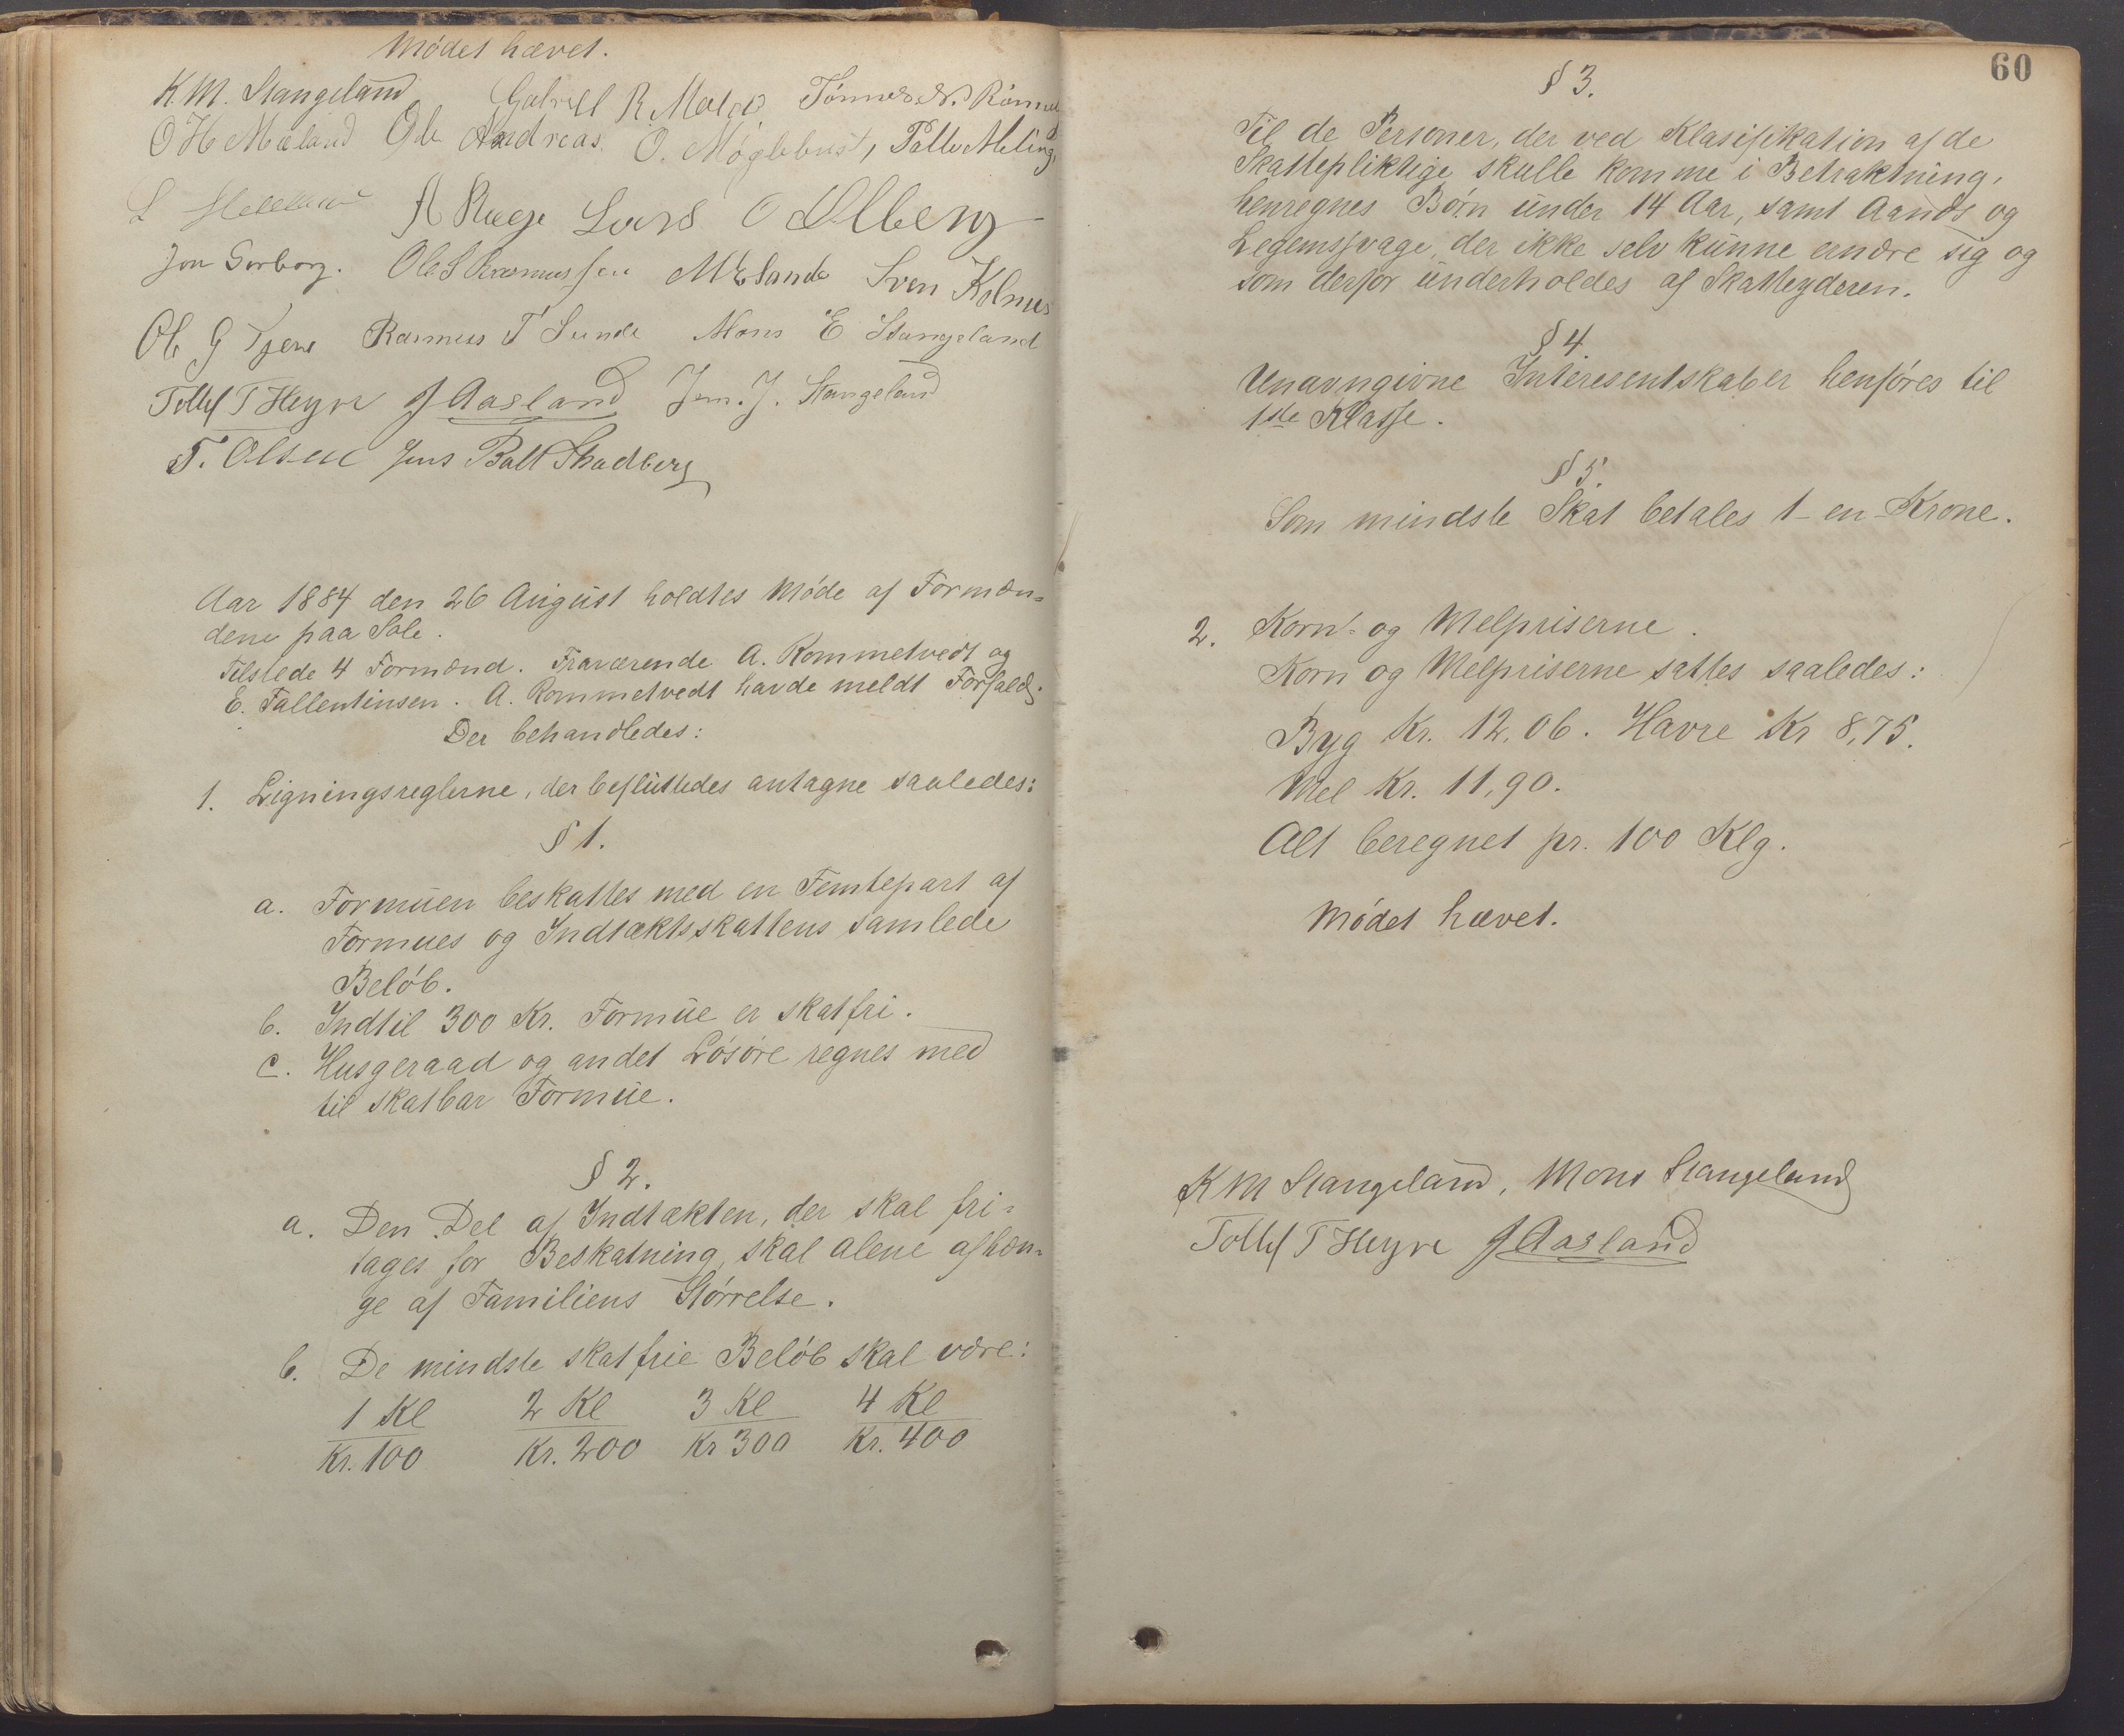 Mødet hævet.
K M. Stangeland Gabriell R. Mæland Tönnes N. Römne
O H Mæland Ole Andreas. O. Møglebust, Palle Meling,
A Ræge Lars O Ølberg
Jon Sørborg. Ole S Rasmussen M E Sande Sven Kolnes
Ole G Tjene Rasmus T Sunde Mons E Stangeland
Tollef T Heyre J Aasland Jon. J. Stangeland
T. Olsen Jens Balt Skadberg
Aar 1884 den 26 August holdtes Møde af Formæn-
dene paa Sole.
Tilstede 4 Formænd. Fraværende A. Rommetvedt og
E. Fallentinsen. A. Rommetvedt havde meldt Forfald;
Der behandledes:
1. Ligningsreglerne, der besluttedes antagne saaledes:
§ 1.
a. Formuen beskattes med en Femtepart af
Formues og Indtæktsskattens samlede
Beløb.
b. Indtil 300 Kr. Formue er skatfri.
c. Husgeraad og andet Løsøre regnes med
til skatbar Formue.
§ 2.
a. Den Del af Indtækten, der skal fri-
tages for Beskatning, skal alene afhæn-
ge af Familiens Størrelse.
b. De mindste skatfrie Beløb skal være:
1 Kl 2 Kl 3 Kl 4 Kl
Kr. 100 Kr. 200 Kr 300 Kr. 400
60
§ 3.
Til de Personer, der ved Klasifikation af de
Skattepliktige skulle komme i Betraktning,
henregnes Børn under 14 Aar, samt Aands og
Legemssvage, der ikke selv kunne ernære sig og
som derfor underholdes af Skatteyderen.
§ 4.
Unavngivne Interesentskaber henføres til
1ste Klasse.
§ 5.
Som mindste Skat betales 1 - en - Krone.
2. Korn- og Melpriserne.
Korn og Melpriserne sattes saaledes:
Byg Kr. 12,06. Havre Kr 8,75.
Mel Kr. 11,90.
Alt beregnet pr. 100 Klg.
Mødet hævet.
K M Stangeland, Mons Stangeland
Tollef T Heyre J Aasland